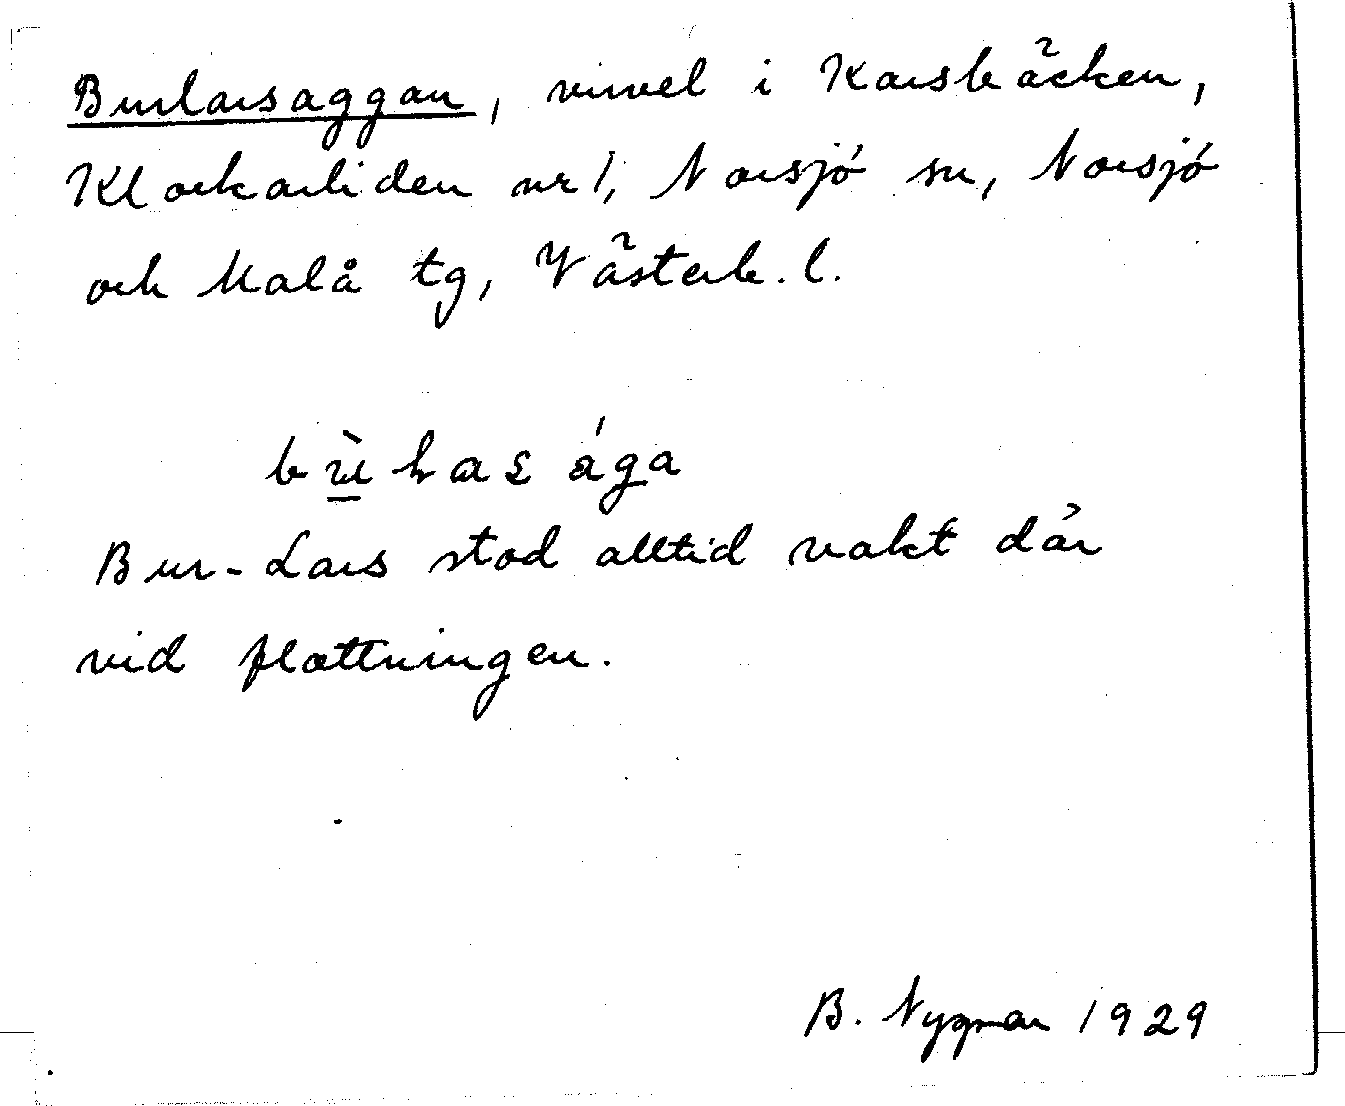 Burlarsaggan, virvel i Karsbäcken,
Klockarliden nr 1, Norsjö sn, Norsjö
och Malå tg, Västerb. l.
Bur-Lars stod alltid vakt där
vid flottningen.
B. Nygren 1929